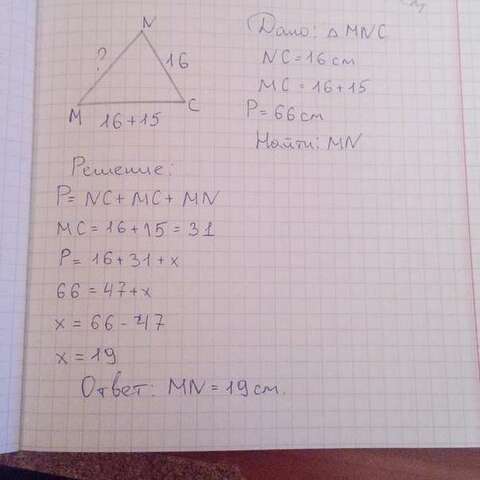 N
?
16
M
C
16+15
Дано: △ MNC
NC=16 см
MC = 16+15
P= 66 см
Найти: MN
Решение:
P= NC+ MC+ MN
MC = 16+15 = 31
P= 16+31+x
66 = 47+x
x = 66 - 47
x = 19
Ответ: MN = 19 см.